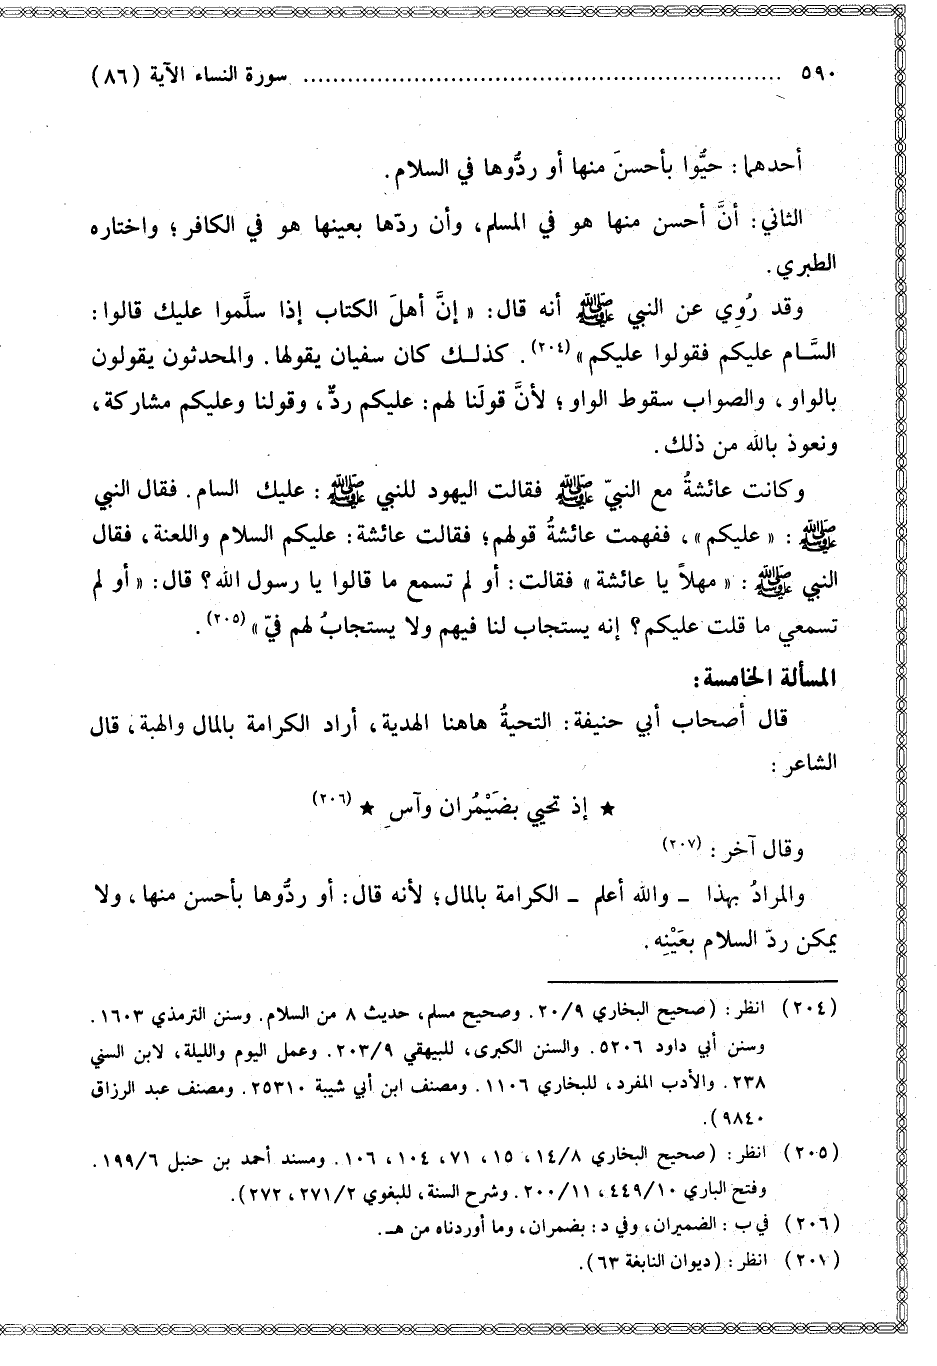 ٥٩٠ ................................................................ سورة النساء الآية (٨٦)
أحدهما: حيُّوا بأحسنَ منها أو ردُّوها في السلام.
الثاني: أنَّ أحسن منها هو في المسلم، وأن ردّها بعينها هو في الكافر؛ واختاره
الطبري.
وقد رُوِي عن النبي ﷺ أنه قال: « إنَّ أهلَ الكتاب إذا سلَّموا عليك قالوا:
السَّام عليكم فقولوا عليكم »(٢٠٤). كذلك كان سفيان يقولها. والمحدثون يقولون
بالواو، والصواب سقوط الواو؛ لأنَّ قولَنا لهم: عليكم ردٌّ، وقولنا وعليكم مشاركة،
ونعوذ بالله من ذلك.
وكانت عائشةُ مع النبيّ ﷺ فقالت اليهود للنبي ﷺ: عليك السام. فقال النبي
ﷺ: « عليكم »، ففهمت عائشةُ قولهم؛ فقالت عائشة: عليكم السلام واللعنة، فقال
النبي ﷺ: « مهلاً يا عائشة » فقالت: أو لم تسمع ما قالوا يا رسول الله؟ قال: « أو لم
تسمعي ما قلت عليكم؟ إنه يستجاب لنا فيهم ولا يستجابُ لهم فيّ »(٢٠٥).
المسألة الخامسة:
قال أصحاب أبي حنيفة: التحيةُ هاهنا الهدية، أراد الكرامة بالمال والهبة، قال
الشاعر:
★ إذ تحيي بضَيْمُران وآسِ ★(٢٠٦)
وقال آخر:(٢٠٧)
والمرادُ بهذا ـ والله أعلم ـ الكرامة بالمال؛ لأنه قال: أو ردُّوها بأحسن منها، ولا
يمكن ردّ السلام بعَيْنِه.
(٢٠٤) انظر: (صحيح البخاري ٢٠/٩. وصحيح مسلم، حديث ٨ من السلام. وسنن الترمذي ١٦٠٣.
وسنن أبي داود ٥٢٠٦. والسنن الكبرى، للبيهقي ٢٠٣/٩. وعمل اليوم والليلة، لابن السني
٢٣٨. والأدب المفرد، للبخاري ١١٠٦. ومصنف ابن أبي شيبة ٢٥٣١٠. ومصنف عبد الرزاق
٩٨٤٠).
(٢٠٥) انظر: (صحيح البخاري ١٤/٨، ١٥، ٧١، ١٠٤، ١٠٦. ومسند أحمد بن حنبل ١٩٩/٦.
وفتح الباري ٤٤٩/١٠، ٢٠٠/١١. وشرح السنة، للبغوي ٢٧١/٢، ٢٧٢).
(٢٠٦) في ب: الضميران، وفي د: بضمران، وما أوردناه من هـ.
(٢٠١) انظر: (ديوان النابغة ٦٣).